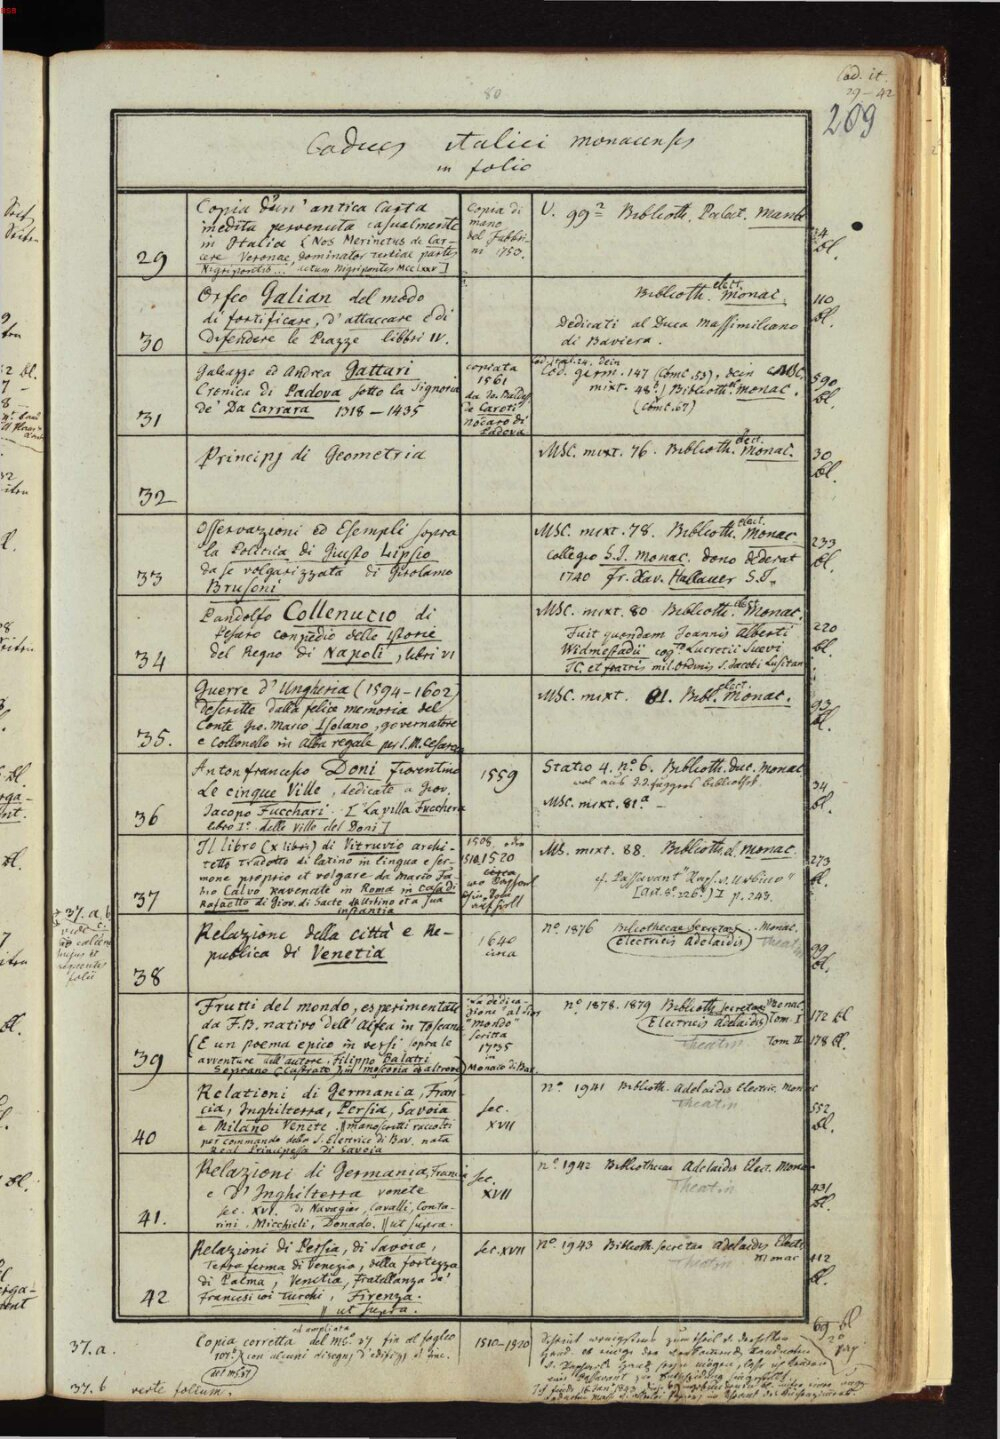 Cod. it.
29-42
209
80
Codices italici monacenses
in folio
29
Copia d'un' antica Carta
inedita pervenuta casualmente
in Italia [Nos Merinetus de Car-
cere Veronae, dominator tertiae partis
Nigripontis ... actum Nigriponte MCCLXXV]
Copia di
mano
del Fabbri-
ni 1753.
V. 99² Biblioth. Palat. Manh
34
bl.
30
Orfeo Galian del modo
di fortificare, d'attaccare e di
difendere le Piazze libbri IV.
Biblioth. elect. Monac.
Dedicati al Duca Massimiliano
di Baviera.
110
bl.
31
Galeazzo ed Andrea Gattari
Cronica di Padova sotto la Signoria
de' Da Carrara 1318-1435
copiata
1561
da Jo. Baldas
de Caroti
nocaro di
Padova
Cod. ital. 24. dein
Cod. germ. 147 (Coml. 53), dein MSC.
mixt. 48. Biblioth. Monac.
(Coml. 67)
590
bl.
32
Principj di Geometria
MSC. mixt. 76. Biblioth. elect. Monac.
30
bl.
33
Osservazioni ed Esempli sopra
la Politica di Giusto Lipsio
da se volgarizzata di Girolamo
Brusoni
MSC. mixt. 78. Biblioth. elect. Monac
Collegio S.J. Monac. dono dederat
1740 Fr. Xav. Hallauer S.J.
233
bl.
34
Pandolfo Collenucio di
Pesaro compedio delle istorie
del Regno di Napoli, libri VI
MSC. mixt. 80 Biblioth. elect. Monac.
Fuit quondam Joannis Alberti
Widmestadii cog. Lucretii Suevi
JC. et fratris mil. Ordinis S. Jacobi Lusitan
220
bl.
35.
Guerre d'Ungheria (1594-1602)
descritte dalla felice memoria del
Conte Gio. Marco Isolano, governatore
e Collonello in Alba regale per S. M. Cesarea
MSC. mixt. 81. Bibl. elect. Monac.
93
bl.
36
Antonfrancesco Doni Fiorentino
Le cinque Ville, dedicate a Giov.
Jacopo Fucchari. [La villa Fucchera
libro I° delle Ville del Doni]
1559
Statio 4. n° 6. Biblioth. duc. Monac
MSC. mixt. 81.a
34
bl.
37
Il libro (X libri) di Vitruvio archi-
tetto tradotto di latino in lingua e ser-
mone proprio et volgare da Marco Fa-
bio Calvo ravenate in Roma in casa di
Rafaello di Giov. di Sacte da Urbino et a sua
instantia
1520
circa
MS. mixt. 88. Biblioth. el. Monac.
cf. Passavant "Raph. v. Urbino"
I p. 243.
273
bl.
38
Relazione della città e Re-
publica di Venetia
1640
circa
n° 1876 Bibliothecae Secretae Monac.
Electricis Adelaidis
Theatin
99
bl.
39
Frutti del mondo, esperimentate
da F.B. nativo dell'Alfea in Toscana
(È un poema epico in versi sopra le
avventure dell'autore, Filippo Balatri
Soprano
La dedica-
zione "al Sior
"Mondo"
scritta
1735
in
Monaco di Bav.
n° 1878. 1879 Biblioth. Secretae Monac.
Electricis Adelaidis Tom. I
Theatin Tom II
172 bl
178 bl.
40
Relationi di Germania, Fran-
cia, Inghilterra, Persia, Savoia
e Milano Venete. || manoscritti raccolti
per commando della S. Elettrice di Bav. nata
Real Principessa di Savoia
sec.
XVII
n° 1941 Biblioth. Adelaidis Electric. Monac
Theatin
552
bl.
41.
Relazioni di Germania, Francia
e d'Inghilterra venete
sec. XVI. di Navagier, Cavalli, Conta-
rini, Micchieli, Donado. || ut supra.
sec.
XVII
n° 1942 Bibliothecae Adelaidis Elect. Monac
Theatin
431
bl.
42
Relazioni di Persia, di Savoia,
Terra ferma di Venezia, della fortezza
di Palma, Venetia, Fratellanza de'
Francesi coi Turchi, Firenza.
|| ut supra.
sec. XVII
n° 1943 Biblioth. secretae Adelaidis Electr
Monac
Theatin
412
bl.
37. a.
ed ampliata
Copia corretta del MS. 37 fin al foglio
con alcuni disegni d'edifizj
del ms. 37
1510-1520
69 bl
37. b
verte folium.